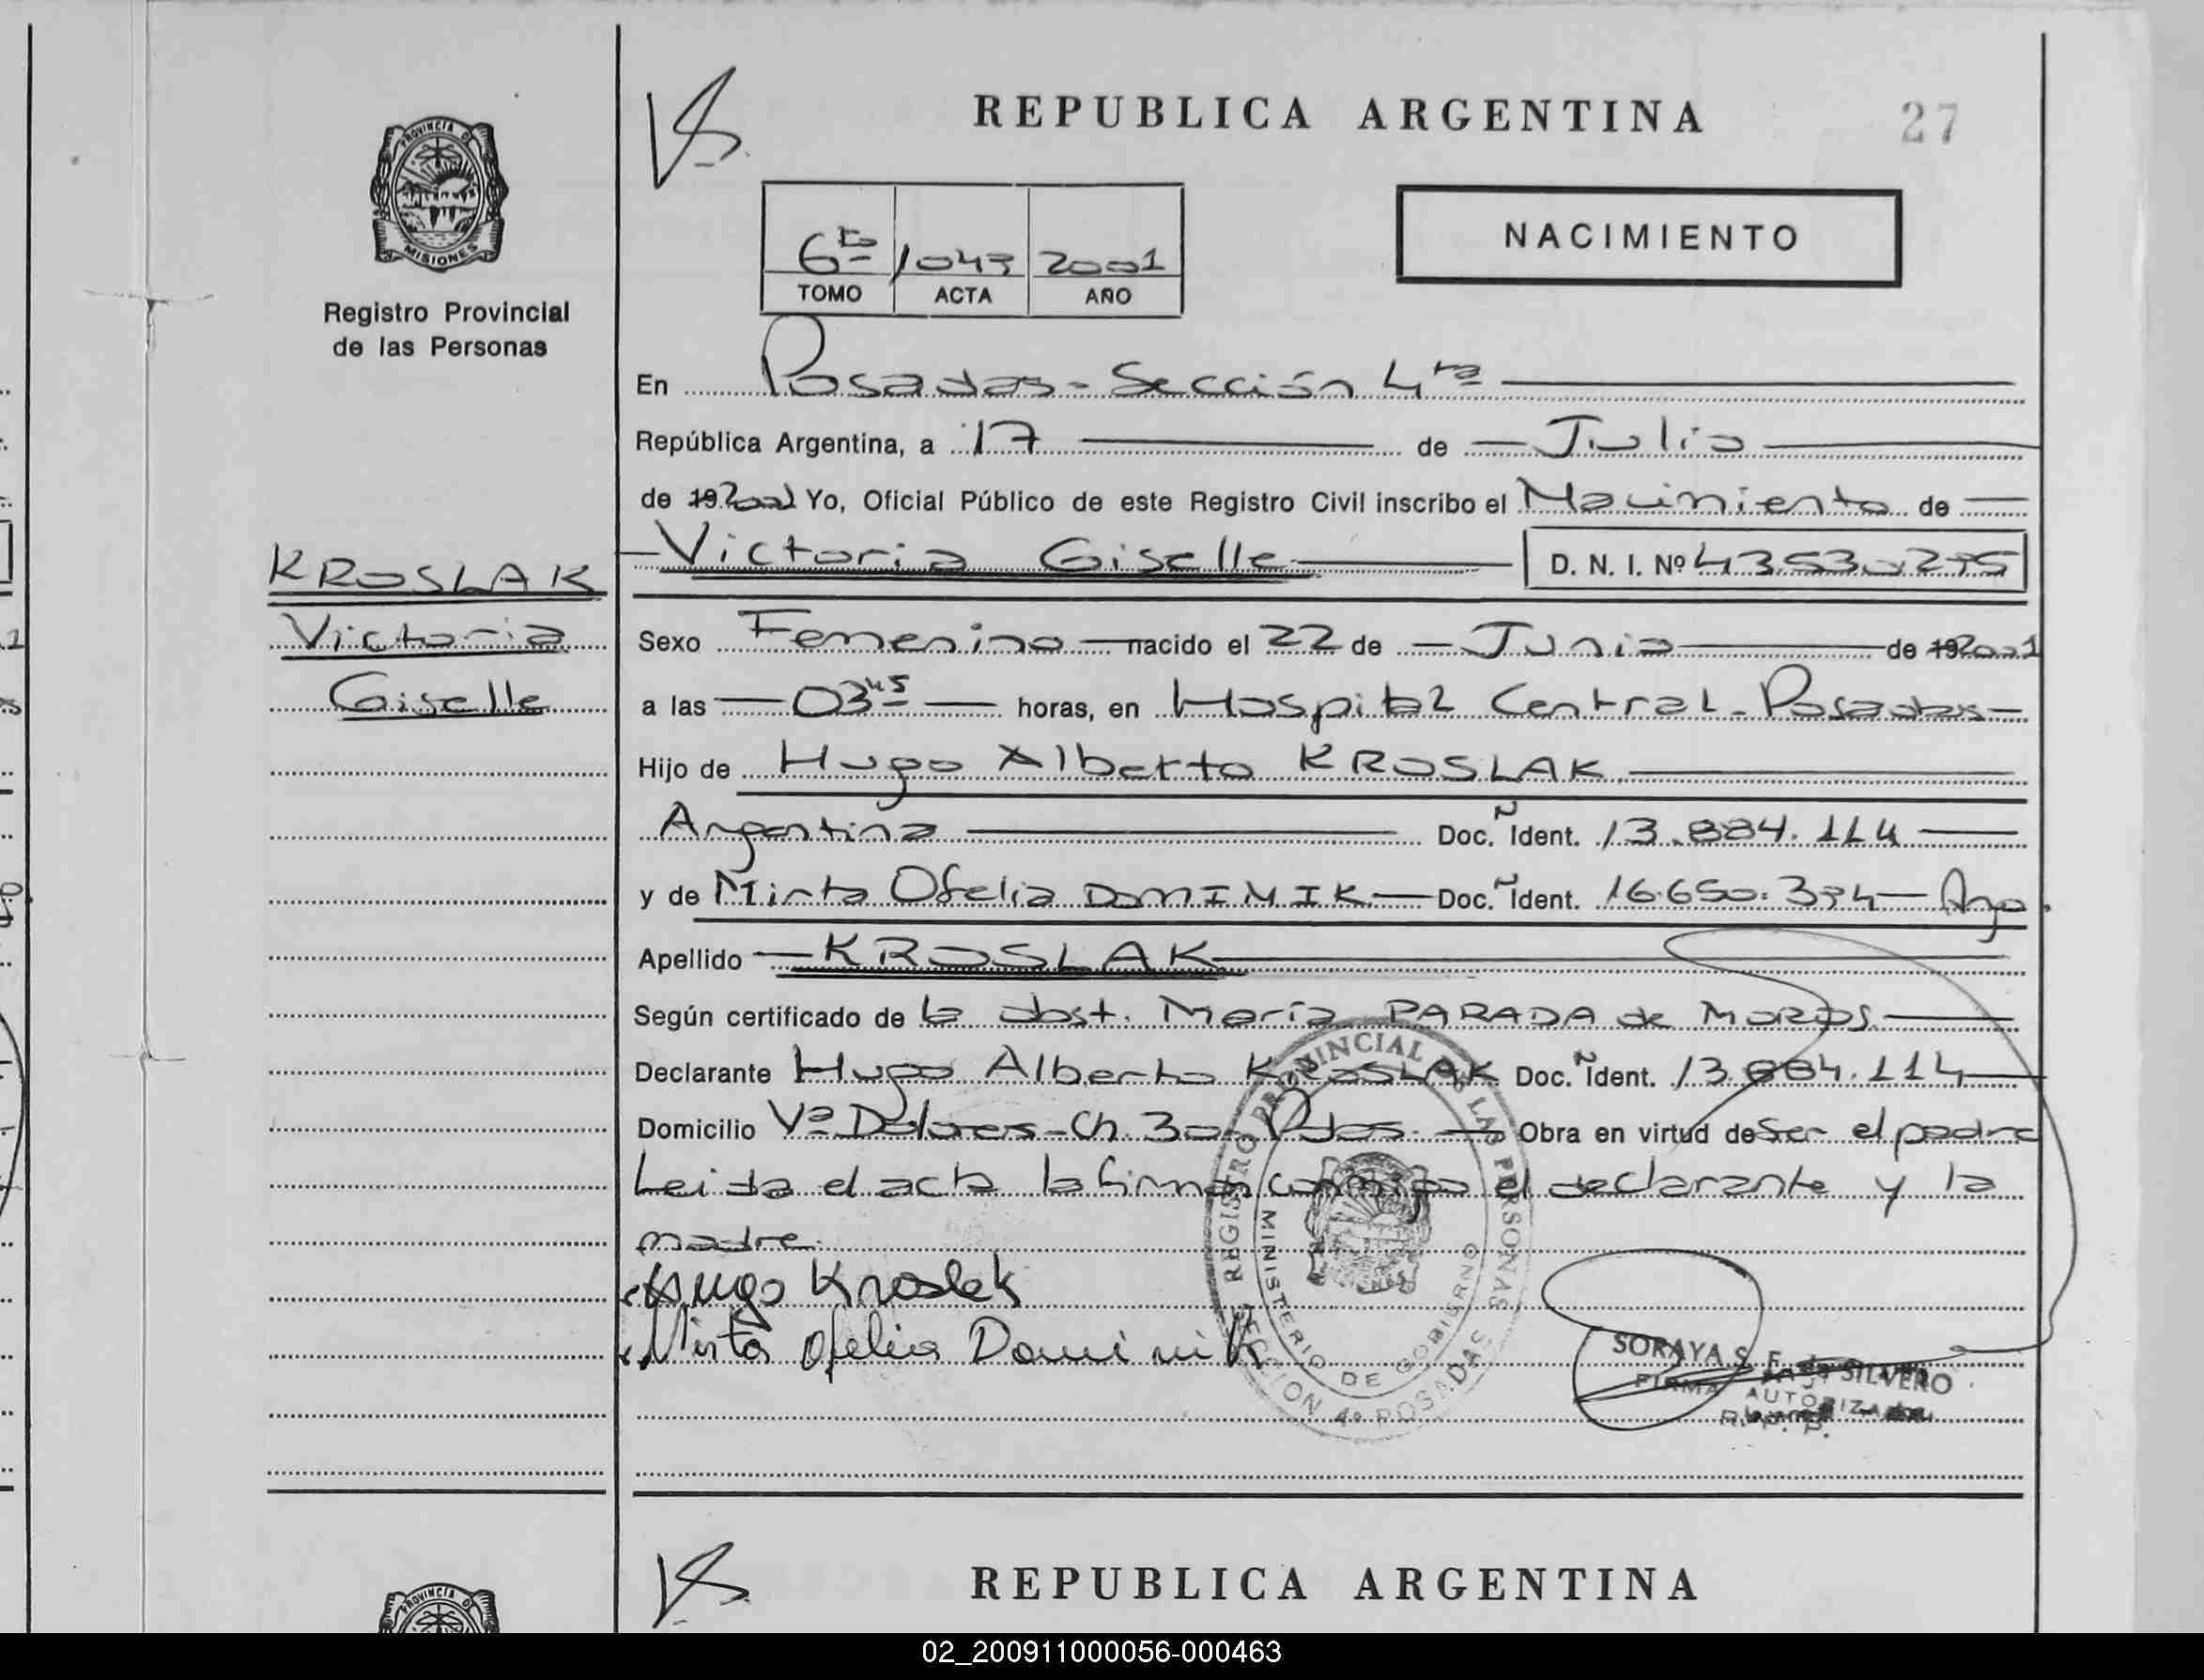 REPUBLICA ARGENTINA
27
PROVINCIA DE
MISIONES
Registro Provincial
de las Personas
NACIMIENTO
6to 1043 2001
TOMO ACTA AÑO
En Posadas - Sección 4ta
República Argentina, a 17 de Julio
de 19 2001 Yo, Oficial Público de este Registro Civil inscribo el Nacimiento de
Victoria Giselle D. N. I. Nº 43.530.275
KROSLAK
Victoria
Giselle
Sexo Femenino nacido el 22 de Junio de 19 2001
a las 03 45 horas, en Hospital Central - Posadas -
Hijo de Hugo Alberto KROSLAK
Argentina Doc. Ident. 13.884.114
y de Mirta Ofelia DOMINIK - Doc. Ident. 16.650.394 - Arg.
Apellido KROSLAK
Según certificado de la obst. María PARADA de MOROS
Declarante Hugo Alberto KROSLAK Doc. Ident. 13.884.114
Domicilio Vª Dolores - Ch. 30 - Pdas - Obra en virtud de ser el padre
Leida el acta la firman conmigo el declarante y la
madre.
Hugo Kroslak
Mirta Ofelia Dominik
REGISTRO PROVINCIAL DE LAS PERSONAS
MINISTERIO DE GOBIERNO
SECCION 4ª POSADAS
SORAYA S. F. de SILVERO
FIRMA AUTORIZADA
R. P. P.
REPUBLICA ARGENTINA
PROVINCIA DE
02_200911000056-000463